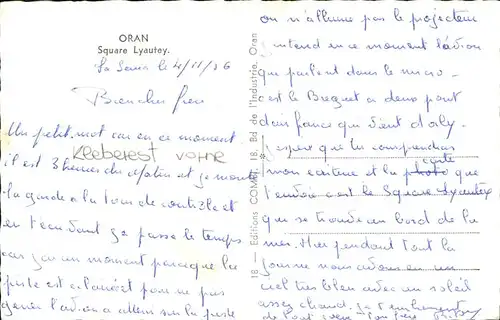 ORAN
Square Lyautey.
La Senia le 4/11/56
Bien cher frère
Un petit mot car en ce moment
Kleberest vorne
il est 3 heures du matin et je monte
la garde à la tour de contrôle et
en t'écrivant ça passe le temps
car par un moment parce que la
piste est
gêner l'avion a atterri sur la piste
18 - Editions COMBIER 18, Bd de l'Industrie, Oran
on n'allume pas le projecteur
j'entend en ce moment l'avion
qui parlent dans le micro
c'est le Breguet a deux pont
d'air france qui vient d'orly.
J'espere que tu comprendras
mon ecriture et la photo carte que
t'envoie c'est le Square Lyautey
qui se trouve au bord de la
mer. Hier pendant tout la
journée nous avions eu un
ciel tres bleu avec un soleil
assez chaud. Je t'embrasse
de tout coeur ton frère